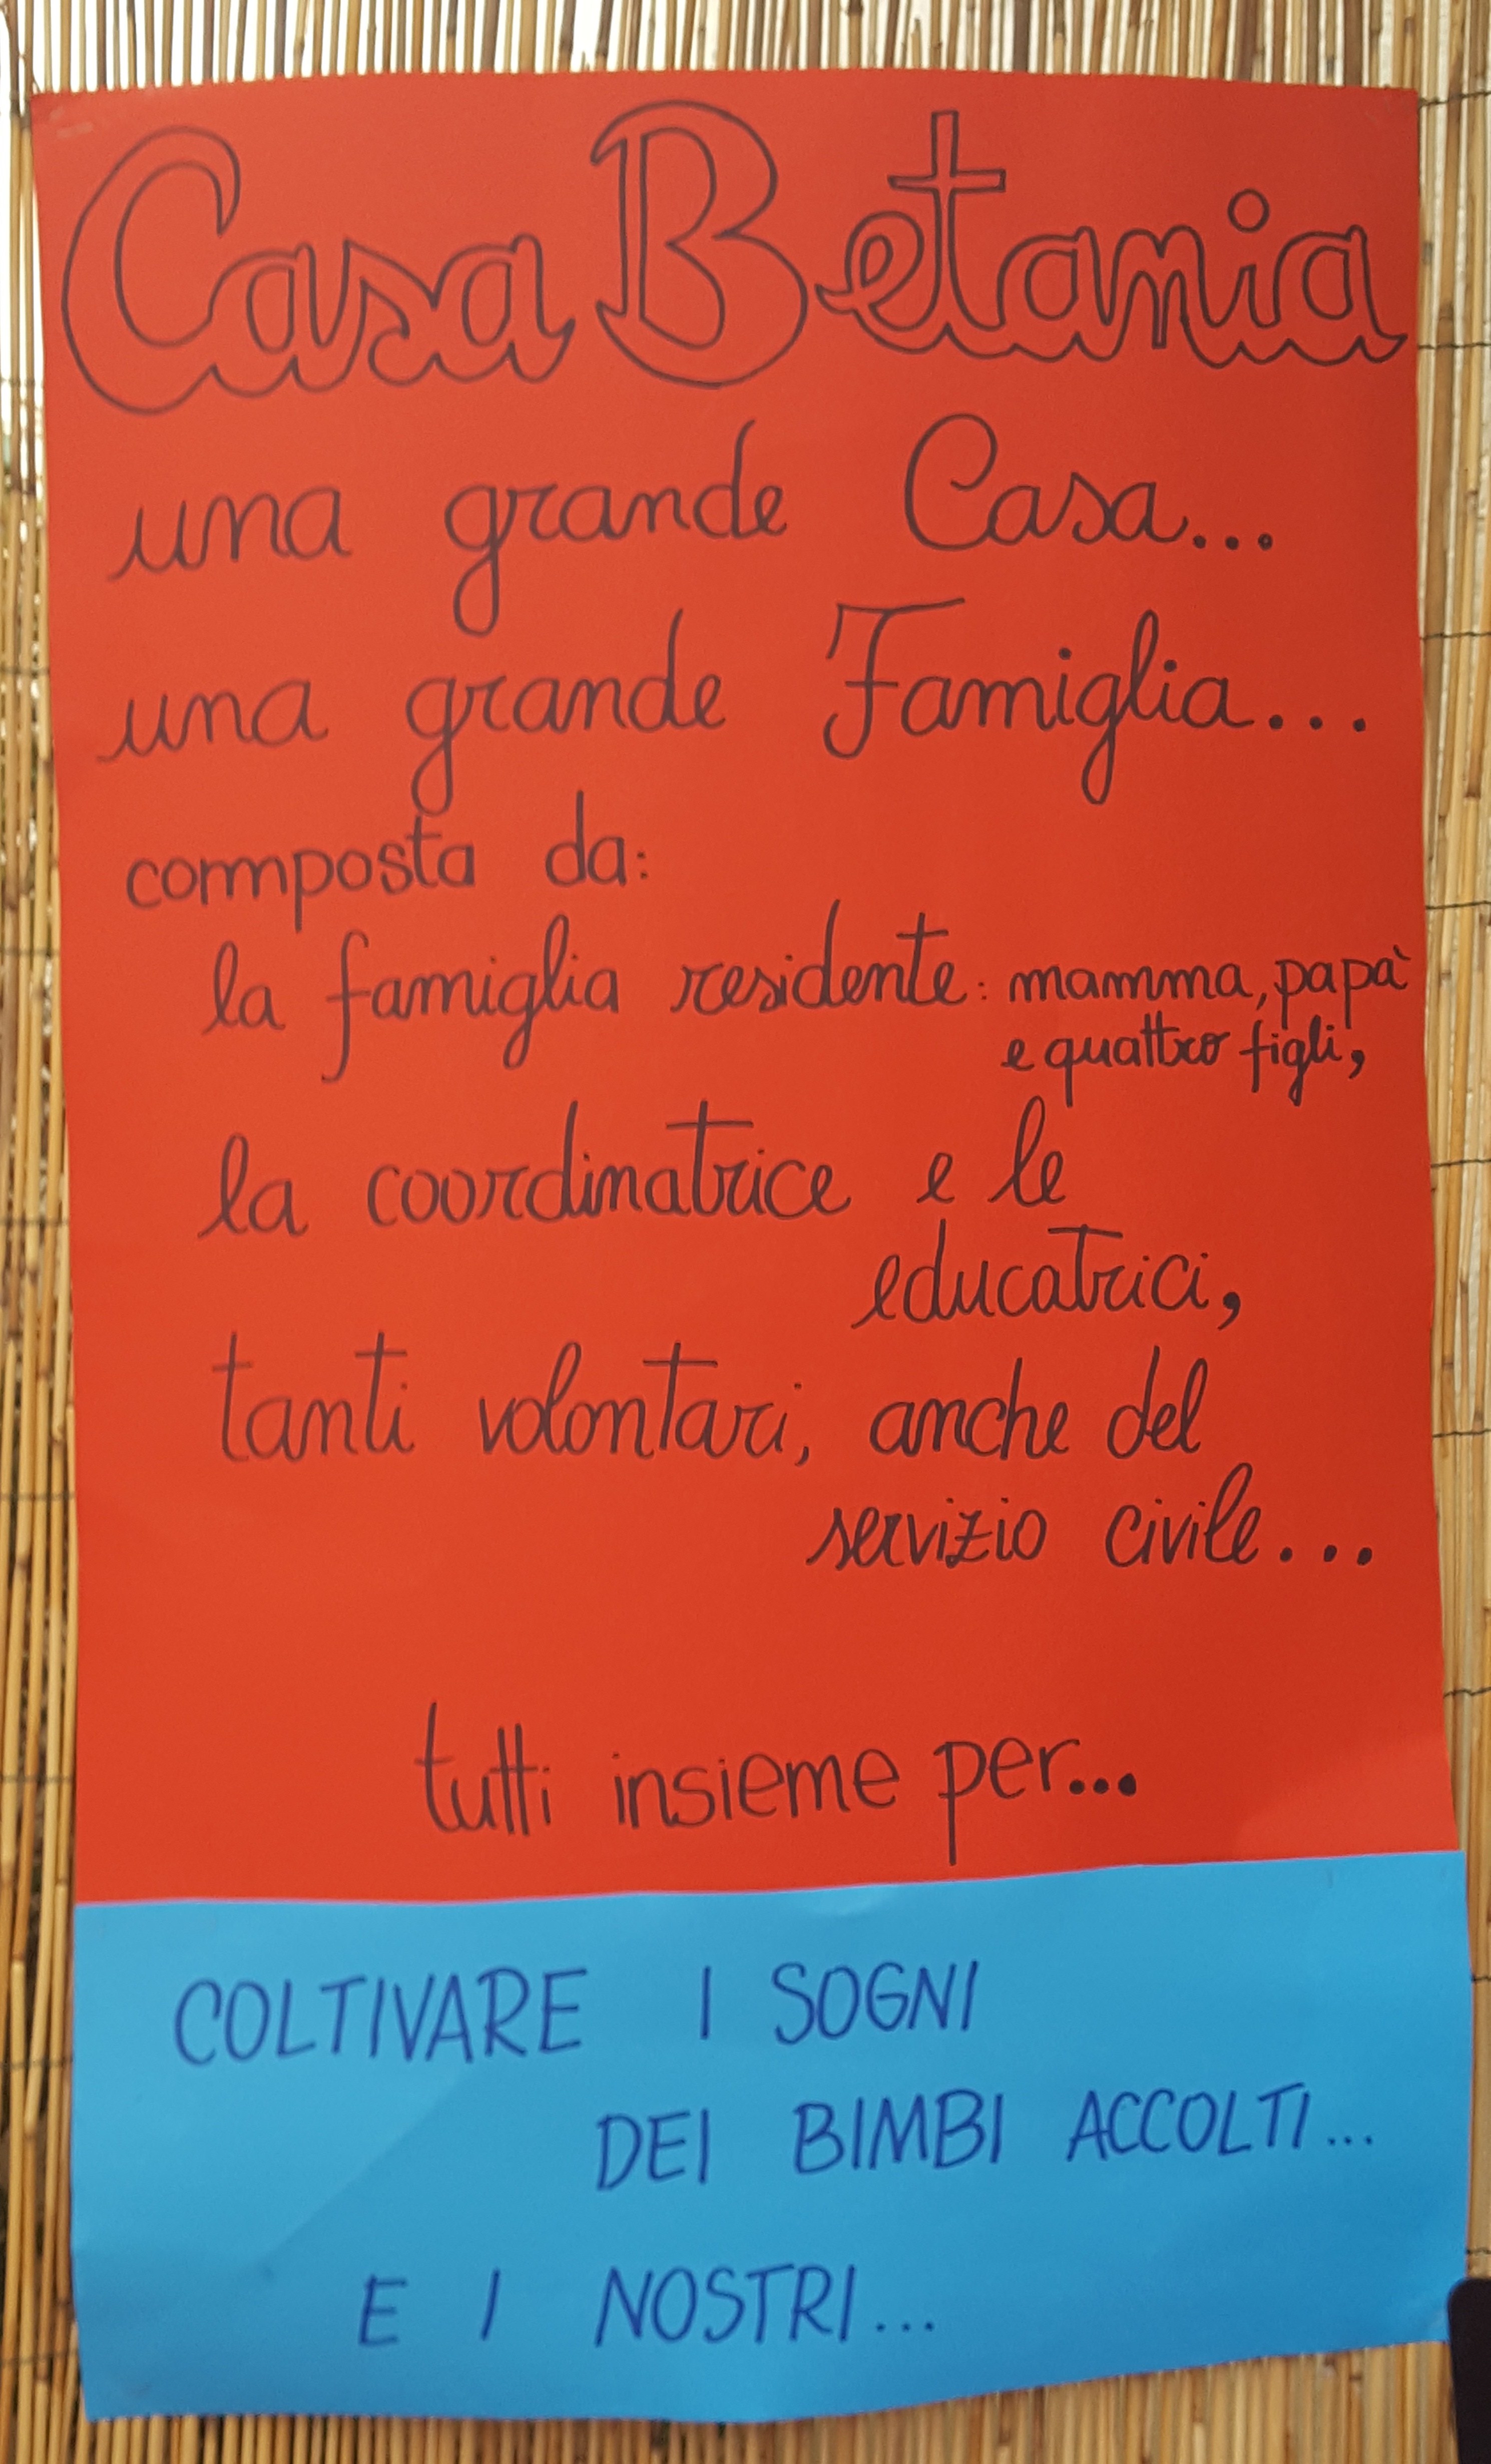 Casa Betania
una grande Casa...
una grande Famiglia...
composta da:
la famiglia residente: mamma, papà
e quattro figli,
la coordinatrice e le
educatrici,
tanti volontari, anche del
servizio civile...
tutti insieme per...
COLTIVARE I SOGNI
DEI BIMBI ACCOLTI...
E I NOSTRI...